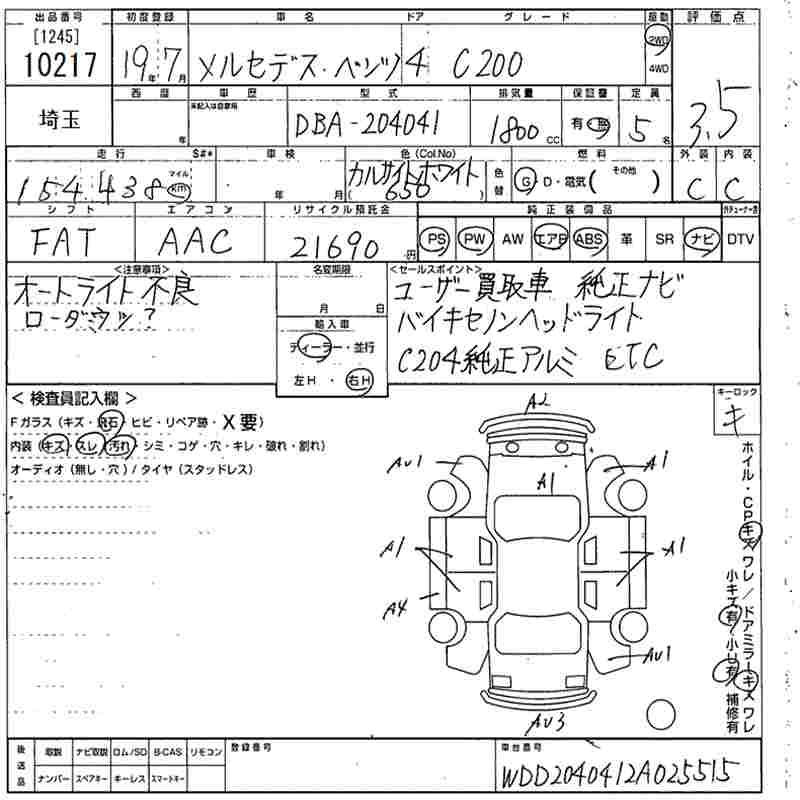 出品番号 初度登録 車名 ドア グレード 駆動 評価点
[1245]
10217 19年7月 メルセデス・ベンツ 4 C200 2WD 4WD 3.5
埼玉 西暦 年 車歴 未記入は自家用 型式 DBA-204041 排気量 1800cc 保証書 有・無 定員 5名
走行 S#* 車検 色(Col.No) 燃料 外装 内装
154,438 マイル km 年 月 カルサイトホワイト (650) 色替 G・D・電気( その他 ) C C
シフト エアコン リサイクル預託金 純正装備品
FAT AAC 21690円 PS PW AW エアB ABS 革 SR ナビ DTV
<注意事項> 名変期限 <セールスポイント>
オートライト不良 月 日 ユーザー買取車 純正ナビ
ローダウン? 輸入車 バイキセノンヘッドライト
ディーラー・並行 C204純正アルミ ETC
左H・右H
<検査員記入欄> キーロック
Fガラス(キズ・飛石・ヒビ・リペア跡・X要) キ
内装(キズ・スレ・汚れ・シミ・コゲ・穴・キレ・破れ・割れ)
オーディオ(無し・穴)/タイヤ(スタッドレス)
A2
AU1 A1 A1
A1 A1
A4
AU1
AU3
ホイル・CPキズワレ/ドアミラーキズワレ
小キズ有 小凹有 補修有
後送品 取説 ナビ取説 ロム/SD B-CAS リモコン 登録番号 車台番号
ナンバー スペアキー キーレス スマートキー WDD2040412A025515